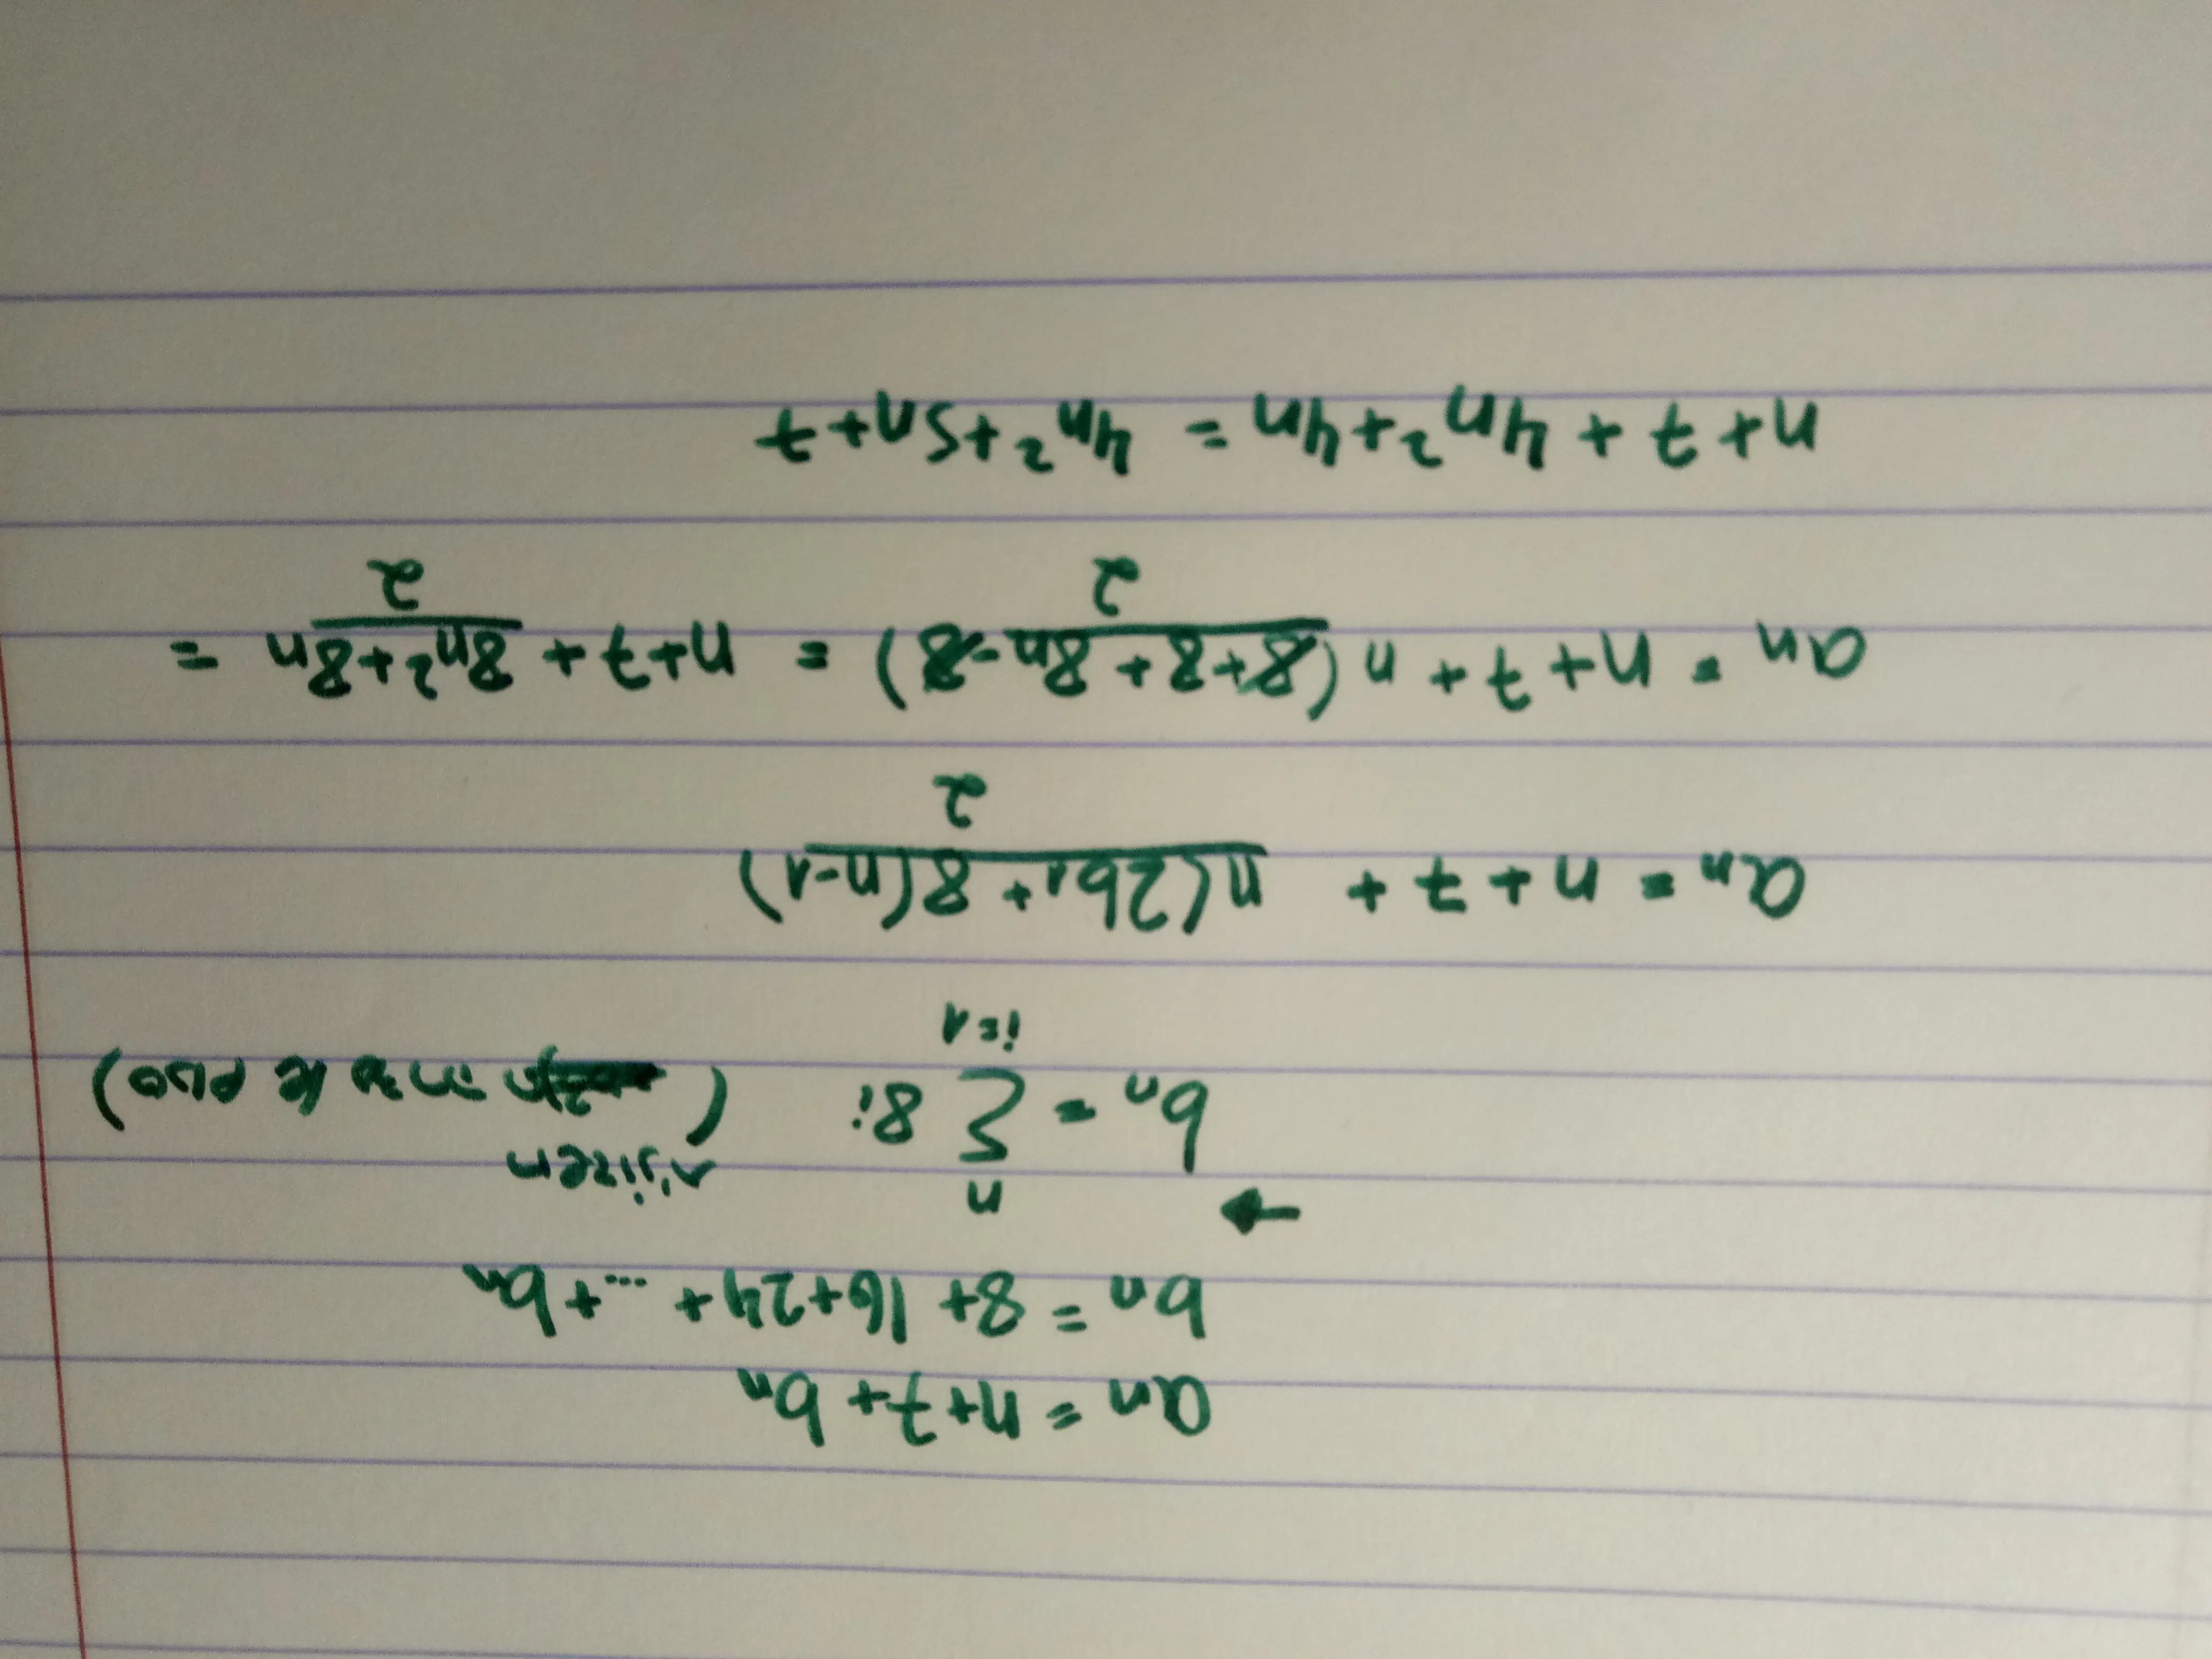 an = n+7+bn
bn = 8+16+24+...+bn
→
n
bn = Σ 8i
i=1
an = n+7+ n(2b1+8(n-1)
2
an = n+7+n(8+8+8n-8) = n+7+ 8n²+8n =
2 2
n+7+4n²+4n = 4n²+5n+7